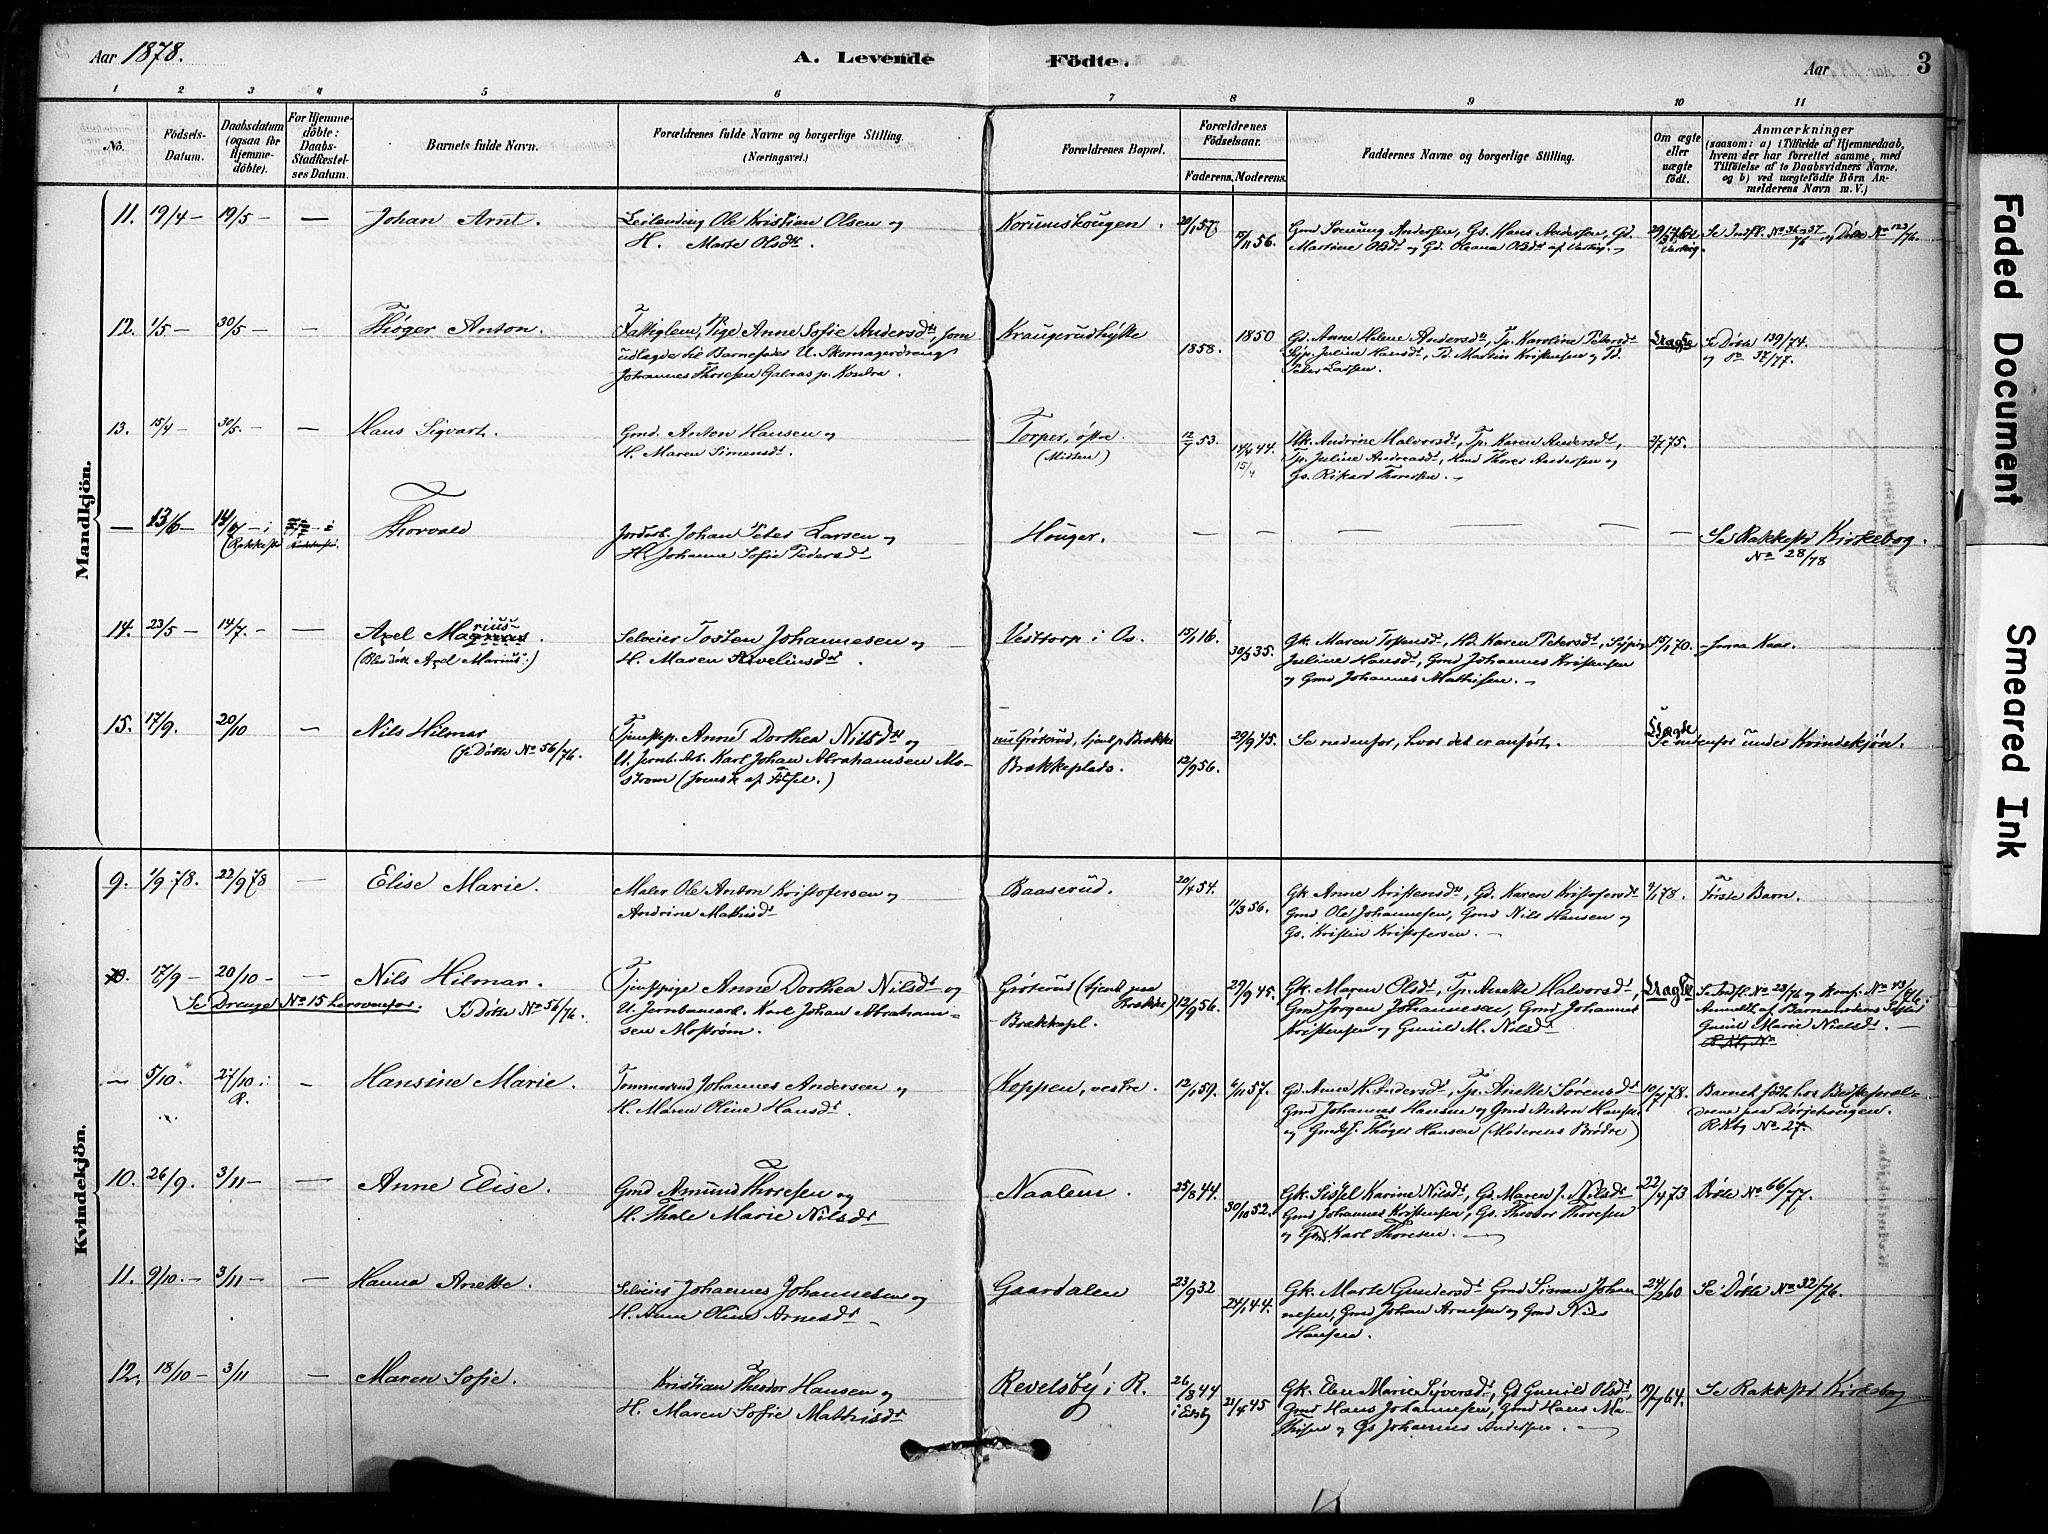 Aar 1878.
A. Levende Födte.
Aar
3
1 2 3 4 5 6 7 8 9 10 11
No.
Födsels-Datum.
Daabsdatum (ogsaa for Hjemme-döbte).
For Hjemme-döbte: Daabs-Stadfæstel-ses Datum.
Barnets fulde Navn.
Forældrenes fulde Navne og borgerlige Stilling. (Næringsvei.)
Forældrenes Bopæl.
Forældrenes Födselsaar.
Faderens. Moderens.
Faddernes Navne og borgerlige Stilling.
Om ægte eller uægte födt.
Anmærkninger
(saasom: a) i Tilfælde af Hjemmedaab, hvem der har forrettet samme, med Tilföielse af to Daabsvidners Navne. og b) ved uægtefödte Börn Anmelderens Navn m. V.)
Mandkjön.
11. 19/4 — 19/5 — — Johan Arnt. Leilænding Ole Kristian Olsen og
H. Marte Olsdtr. Korumskougen. 20/1 57 15/11 56.
Martine Olsdt og Gd. Olsdt af Varteig.
12. 1/5 — 30/5 — — Thöger Anton. Fattiglem, Pige Anne Sofie Andersdtr, som
udlagde til Barnefader U. Skomagerdreng
Johannes Thoresen Galaas p. Kondra.
Kraugerudhytte 1858. 1850 Gd. Anne Helene Andersdt, Tp. Karoline Petersdt
Juline Hansdt, Martin Kristensen og
Peter Larsen.
Uægte Se Döbte 139/74.
og do 37/77.
13. 15/4 — 30/5. — — Hans Sigvart. Gmd. Anton Hansen og
H. Maren Simensdt. Torper, östre. (Midten) 12/7 53. 14/4 44. 15/4
Gk. Andrine Halvorsdt, Tp. Karen Andersdt,
Tp. Juline Andreasdt, Gmd Thores Andersen og
Gs. Rikard Thoresen. — 2/7 75.
— 13/6 — 14/7 — i (Rakkestad) Thorvald Johan Peter Larsen og
H. Johanne Sofie Pedersdt Houger. — — — — — — Se Rakkestd Kirkebog.
No 28/78
14. 23/5 — 14/7. — — Axel Marius.
(Blev döbt Axel Marius.) Selveier Tosten Johannesen og
H. Maren Evelinsdtr Vesttorp i Os. 15/1 16. 30/3 35. Gk. Maren Tostensdt, Karen Petersdt,
Juline Hansdt, Gmd Johannes Kristensen
og Gmd Johannes Mathisen. — 15/1 70.
15. 17/9. 20/10 — Nils Hilmar
(Se Döbte No 56/76. Tjenestep. Anne Dorthea Nilsdtr og
U. Jernb. Arb. Karl Johan Abrahamsen Mo-
ström (svensk af Födsel.) nu Gröterud, tjente p Brække
Brækkeplads. 12/9 56. 29/9 45. Se nedenfor, hvor det er anfört. Uægte
Se nedenfor under Kvindekjön.
Kvindekjön.
9. 1/9 78. 22/9 78 — Elise Marie. Maler Ole Anton Kristofersen og
Andrine Mathisdt Baaserud. 20/4 54. 11/3 56. Gk. Anne Kristensdt, Gd. Karen Kristofersdt
Gmd Ole Johannesen, Gmd Nils Hansen og
Gs. Kristin Kristofersen. — 4/1 78. Förste Barn.
10. 17/9 — 20/10 — — Nils Hilmar.
Se Drenge No 15 herovenfor. Se Döbte No 56/76. Tjenestpige Anne Dorthea Nilsdt og
U. Jernbanearb. Karl Johan Abraham-
sen Moström. Gröterud (tjente paa Brække)
— Brækkepl. 12/9 56. 29/9 45. Gk. Maren Olsdt, Tp. Anette Halvorsdt,
Gmd Jörgen Johannesen, Gmd Johannes
Kristensen og Gunild M. Nilsdt Uægte Se Indfl. No 23/76 og Konf. No 13/76.
Anmeldt af Barnemoderens Söster
Gunil Marie Nielsdt. —
— 5/10. 27/10 i R. — Hansine Marie. Tömmermd Johannes Andersen og
H. Maren Oline Hansdt. Koppen, vestre. 12/1 59. 6/11 57. Gd. Anne H. Andersdt, Tp. Anette Sörensdt
Gmd Johannes Hansen og Gmd Anton Hansen
og Gmds. Thöger Hansen (Moderens Brödre) 10/7 78. Barnet födt hos Bedsteforæl-
drene paa Dörjehougen.
R. Kbg No 27.
10. 26/9. 3/11 — — Anne Elise. Gmd Amund Thoresen og
H. Thale Marie Nilsdt Naalem. 25/8 44. 30/10 52. Gk. Sissel Karine Nilsdt, Gd. Maren J. Nilsdt
Gmd Johannes Kristensen, Gs. Theodor Thoresen
og Gmd Karl Thoresen. — 22/4 73 Döbte No 66/77.
11. 9/10. — 3/11 — — Hanna Anette. Selveier Johannes Johannesen og
H. Anne Oline Arnesdt. Gaardalen 23/9 32 24/1 44. Gk. Marte Gundersdt Gmd Simon Johan
nesen, Gmd Johan Arnesen og Gmd Nils
Hansen. 24/2 60 Se Döbte No 32/76.
12. 18/10 — 3/11 — Maren Sofie. Kristian Theodor Hansen og
H. Maren Sofie Mathisdt Revelsby i R. 26/8 44 21/4 45 Gk. Elen Marie Syversdt, Gd Gunild Olsdt,
Gmd Hans Johannesen, Gmd Hans Ma-
thisen og Gs Johannes Andersen. — 19/7 64. Se Rakkestd Kirkebog
Faded Document
Smeared Ink